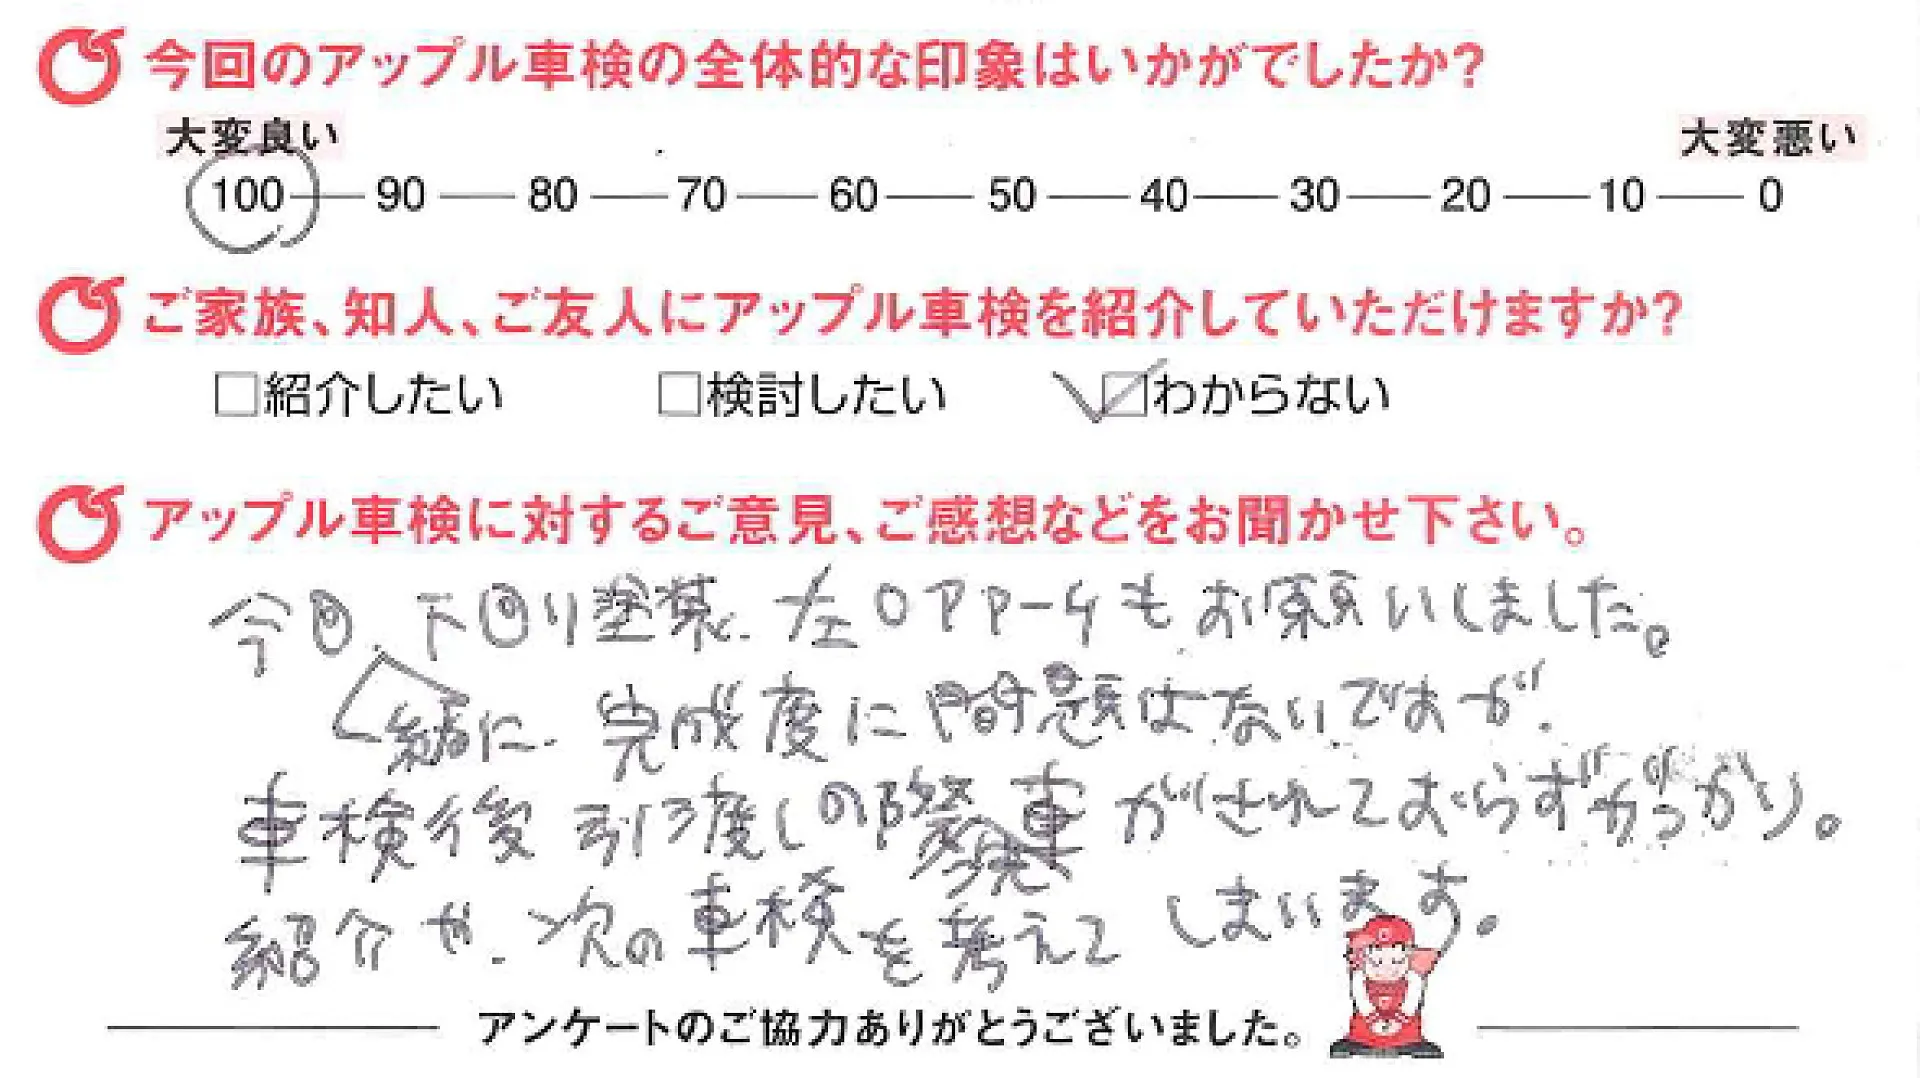 今回のアップル車検の全体的な印象はいかがでしたか?
大変良い 大変悪い
100 90 80 70 60 50 40 30 20 10 0
ご家族、知人、ご友人にアップル車検を紹介していただけますか?
□紹介したい □検討したい ☑わからない
アップル車検に対するご意見、ご感想などをお聞かせ下さい。
今回、下回り塗装、左ロアアームもお願いしました。
緒に、完成度に問題はないですが、
車検後引い渡しの際 車がされておらずがっかり。
紹介や、次の車検を考えてしまいます。
アンケートのご協力ありがとうございました。